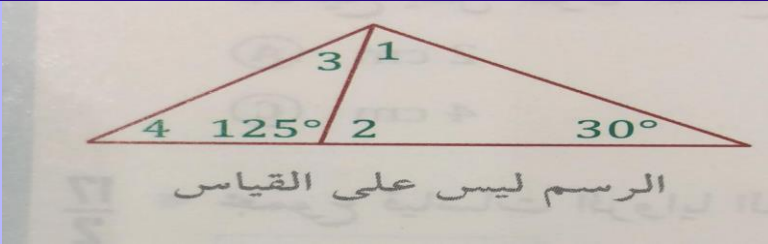 3 1
4 125° 2 30°
الرسم ليس على القياس